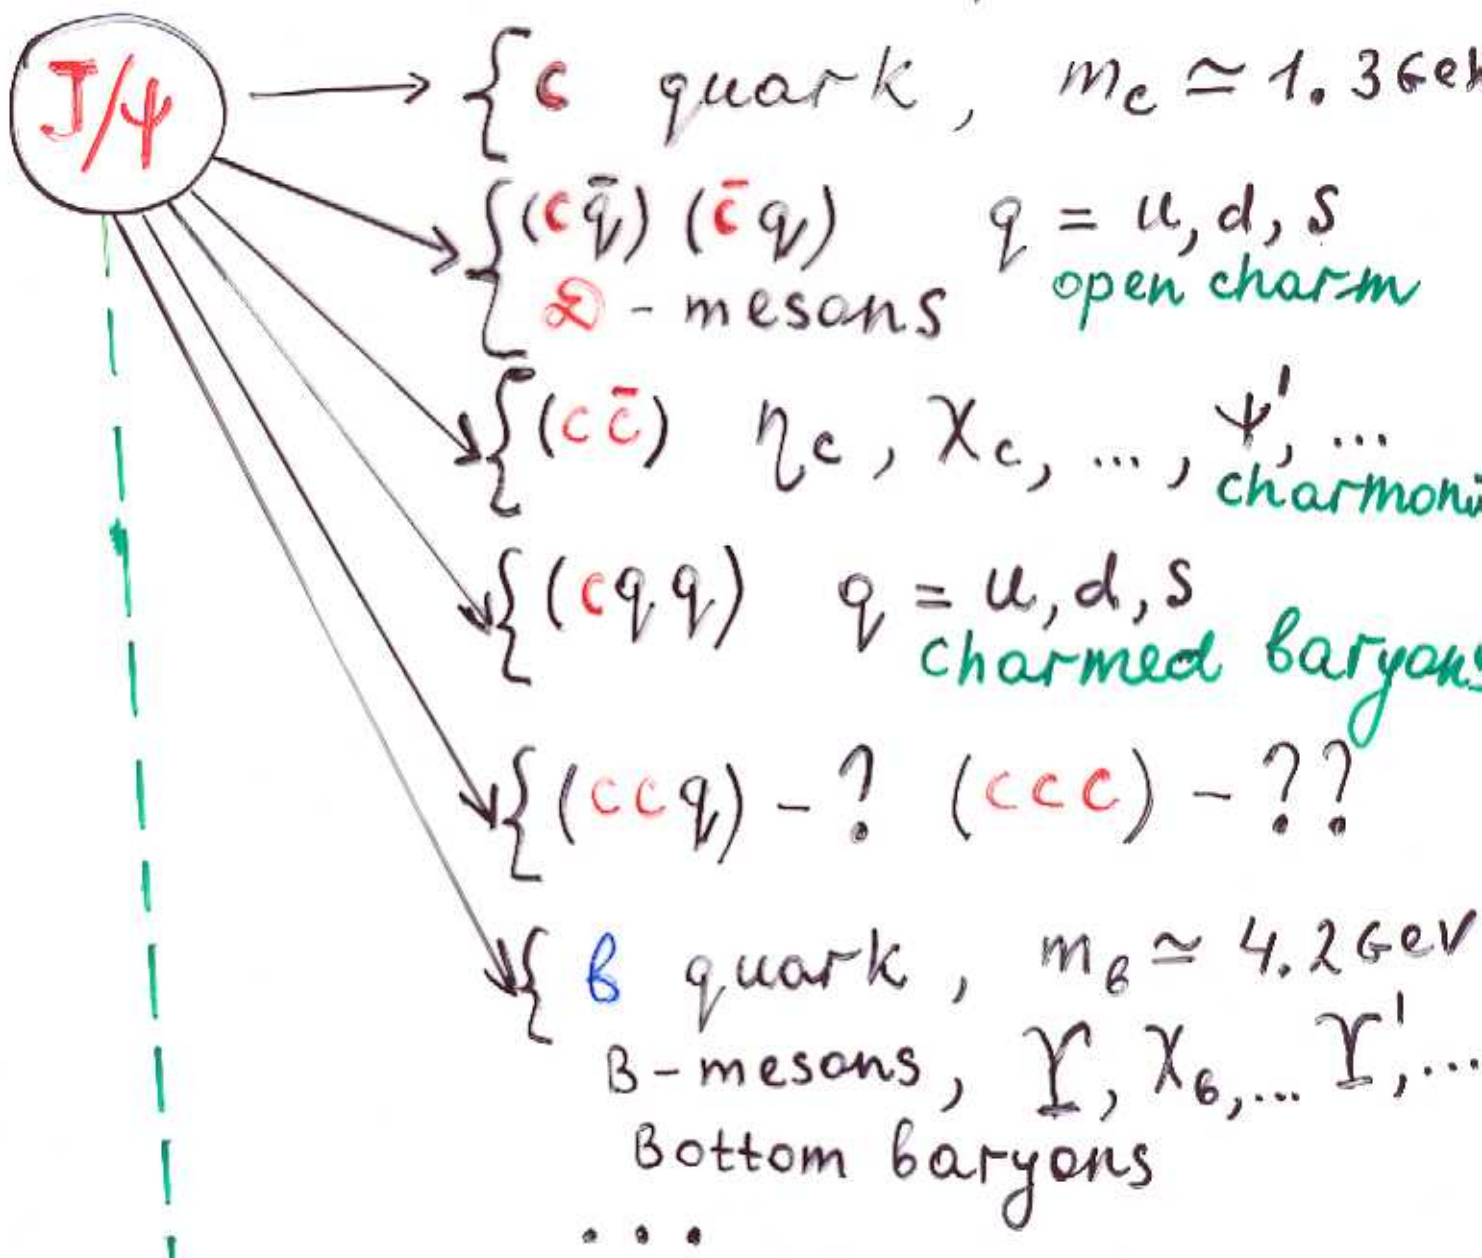 J/ψ
{ c quark, m_c ≃ 1.3 GeV
{ (c q̄) (c̄ q) q = u, d, s
D - mesons open charm
{ (c c̄) η_c, χ_c, ..., ψ', ...
charmoni
{ (c q q) q = u, d, s
charmed baryons
{ (c c q) - ? (c c c) - ??
{ b quark, m_b ≃ 4.2 GeV
B-mesons, ϒ, χ_b, ... ϒ', ...
Bottom baryons
...